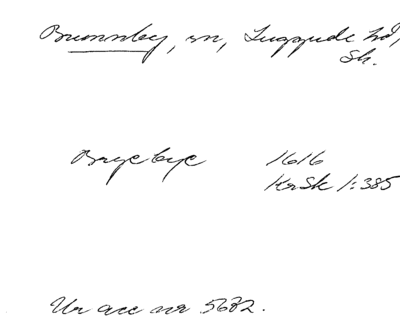 Brunnby, sn, Luggude hd,
Sk.
Bryebye 1616
KrSk 1:385
Ur acc nr 5682.